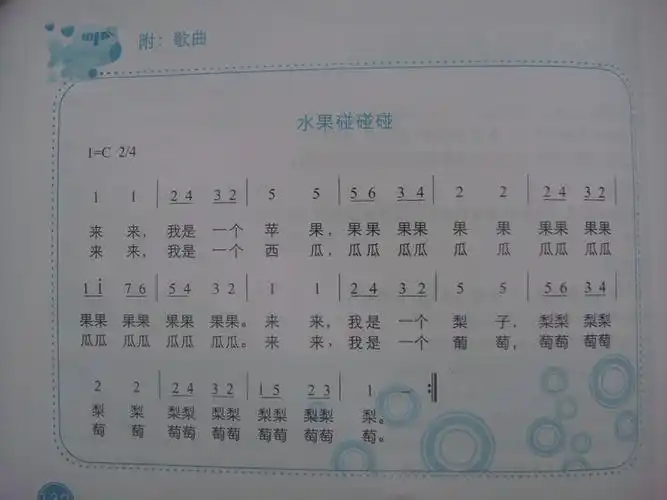 附：歌曲
水果碰碰碰
1=C 2/4
1 1 | 2 4 3 2 | 5 5 | 5 6 3 4 | 2 2 | 2 4 3 2 |
来 来， 我是 一个 苹 果， 果果 果果 果 果 果果 果果
来 来， 我是 一个 西 瓜， 瓜瓜 瓜瓜 瓜 瓜 瓜瓜 瓜瓜
1 i 7 6 | 5 4 3 2 | 1 1 | 2 4 3 2 | 5 5 | 5 6 3 4 |
果果 果果 果果 果果。 来 来， 我是 一个 梨 子， 梨梨 梨梨
瓜瓜 瓜瓜 瓜瓜 瓜瓜。 来 来， 我是 一个 葡 萄， 萄萄 萄萄
2 2 | 2 4 3 2 | 1 5 2 3 | 1 – :||
梨 梨 梨梨 梨梨 梨梨 梨梨 梨。
萄 萄 萄萄 萄萄 萄萄 萄萄 萄。